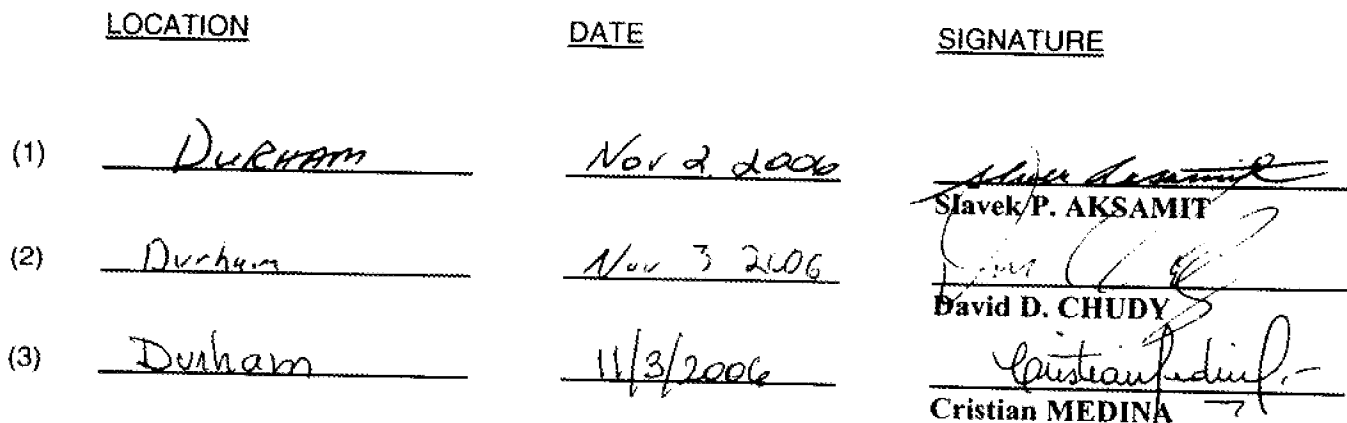 LOCATION DATE SIGNATURE
(1) DURHAM Nov 2 2006
Slavek P. AKSAMIT
(2) Durham Nov 3 2006
David D. CHUDY
(3) Durham 11/3/2006 Cristian Medina
Cristian MEDINA